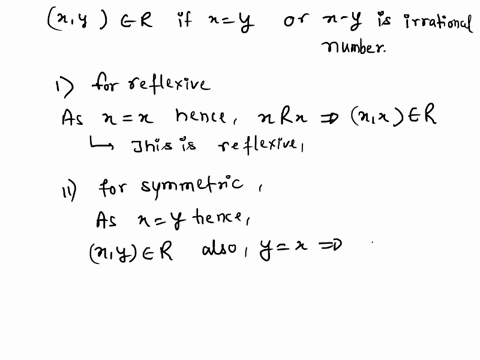 (x,y) ∈ R if x=y or x-y is irrational
number.
i) for reflexive
As x=x hence, xRx ⇒ (x,x) ∈ R
↳ This is reflexive,
ii) for symmetric,
As x=y hence,
(x,y) ∈ R also, y=x ⇒